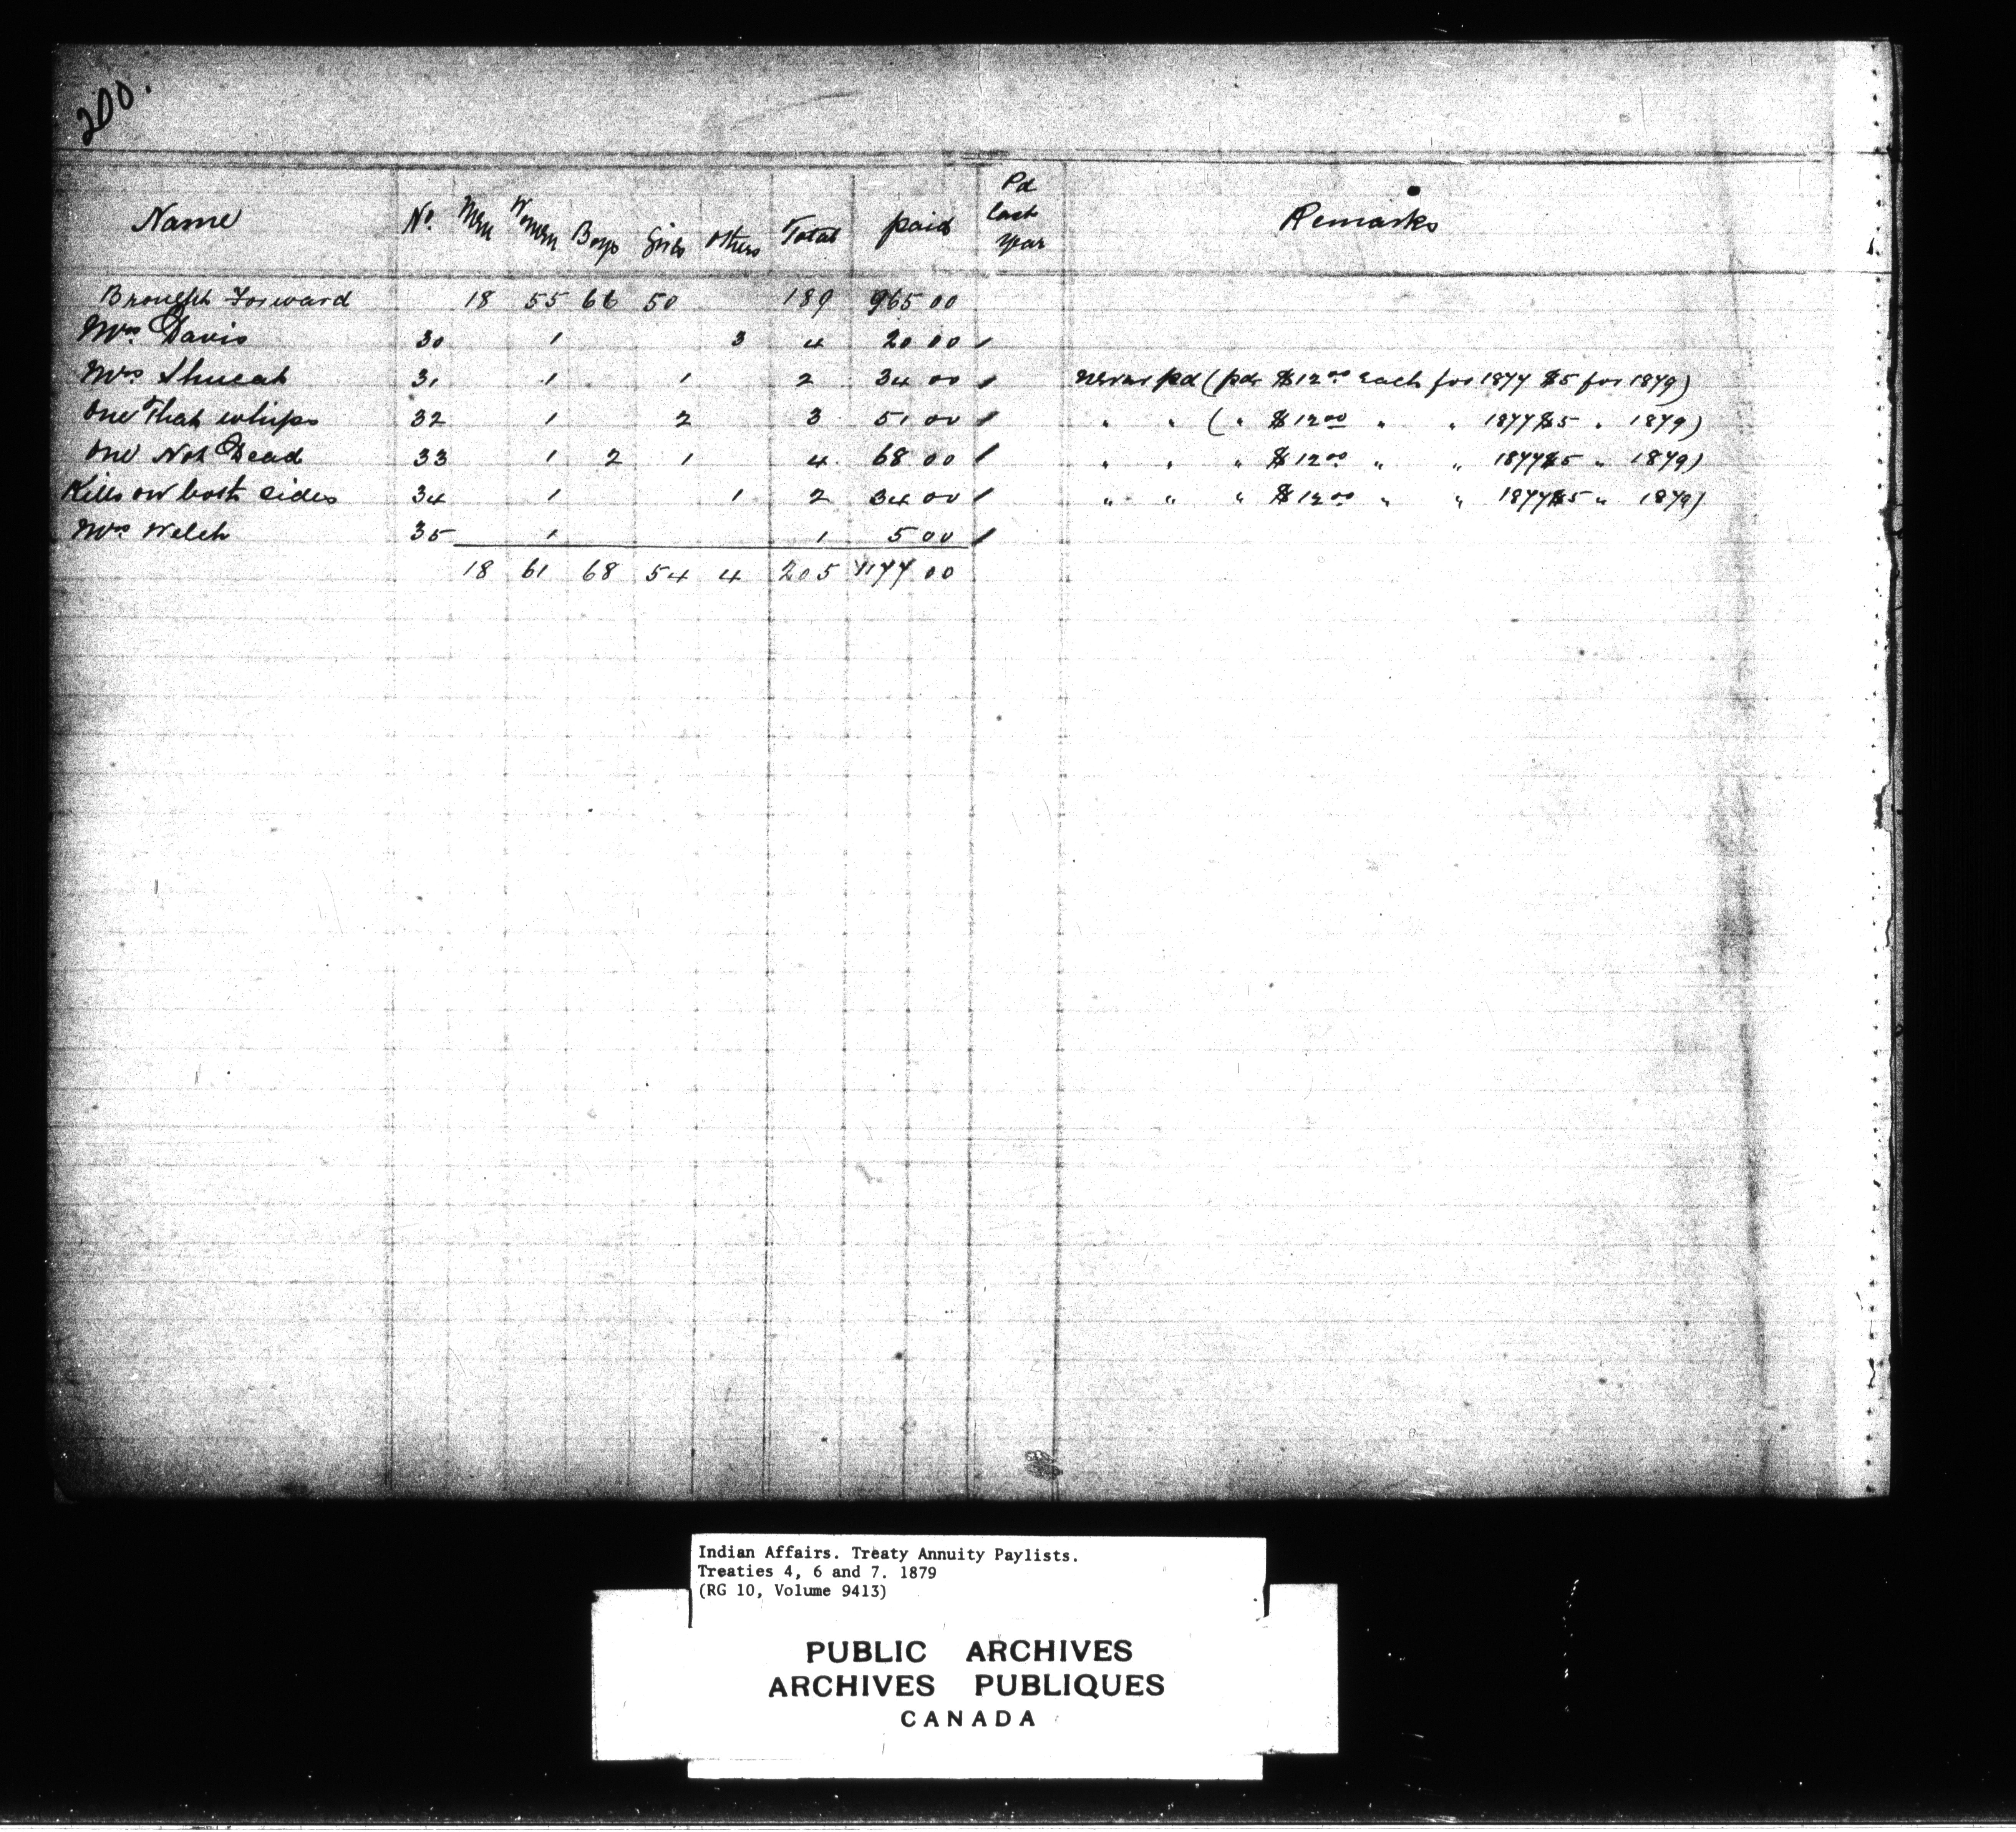 200.
Name No. Men Women Boys Girls Others Total paid Pd last year Remarks
Brought Forward 18 55 66 50 189 965 00
Mrs. Davis 30 1 3 4 20 00
Mrs. 31 1 1 2 34 00 never pd (pd. $12 00 each for 1877 $5 for 1879)
One That whips 32 1 2 3 51 00 " " ( " $12 00 " " 1877 $5 " 1879)
One Not Dead 33 1 2 1 4 68 00 " " " $12 00 " " 1877 $5 " 1879)
Kills on both sides 34 1 1 2 34 00 " " " $12 00 " " 1877 $5 " 1879)
Mrs. Welch 35 1 1 5 00
18 61 68 54 4 205 1177 00
Indian Affairs. Treaty Annuity Paylists.
Treaties 4, 6 and 7. 1879
(RG 10, Volume 9413)
PUBLIC ARCHIVES
ARCHIVES PUBLIQUES
CANADA